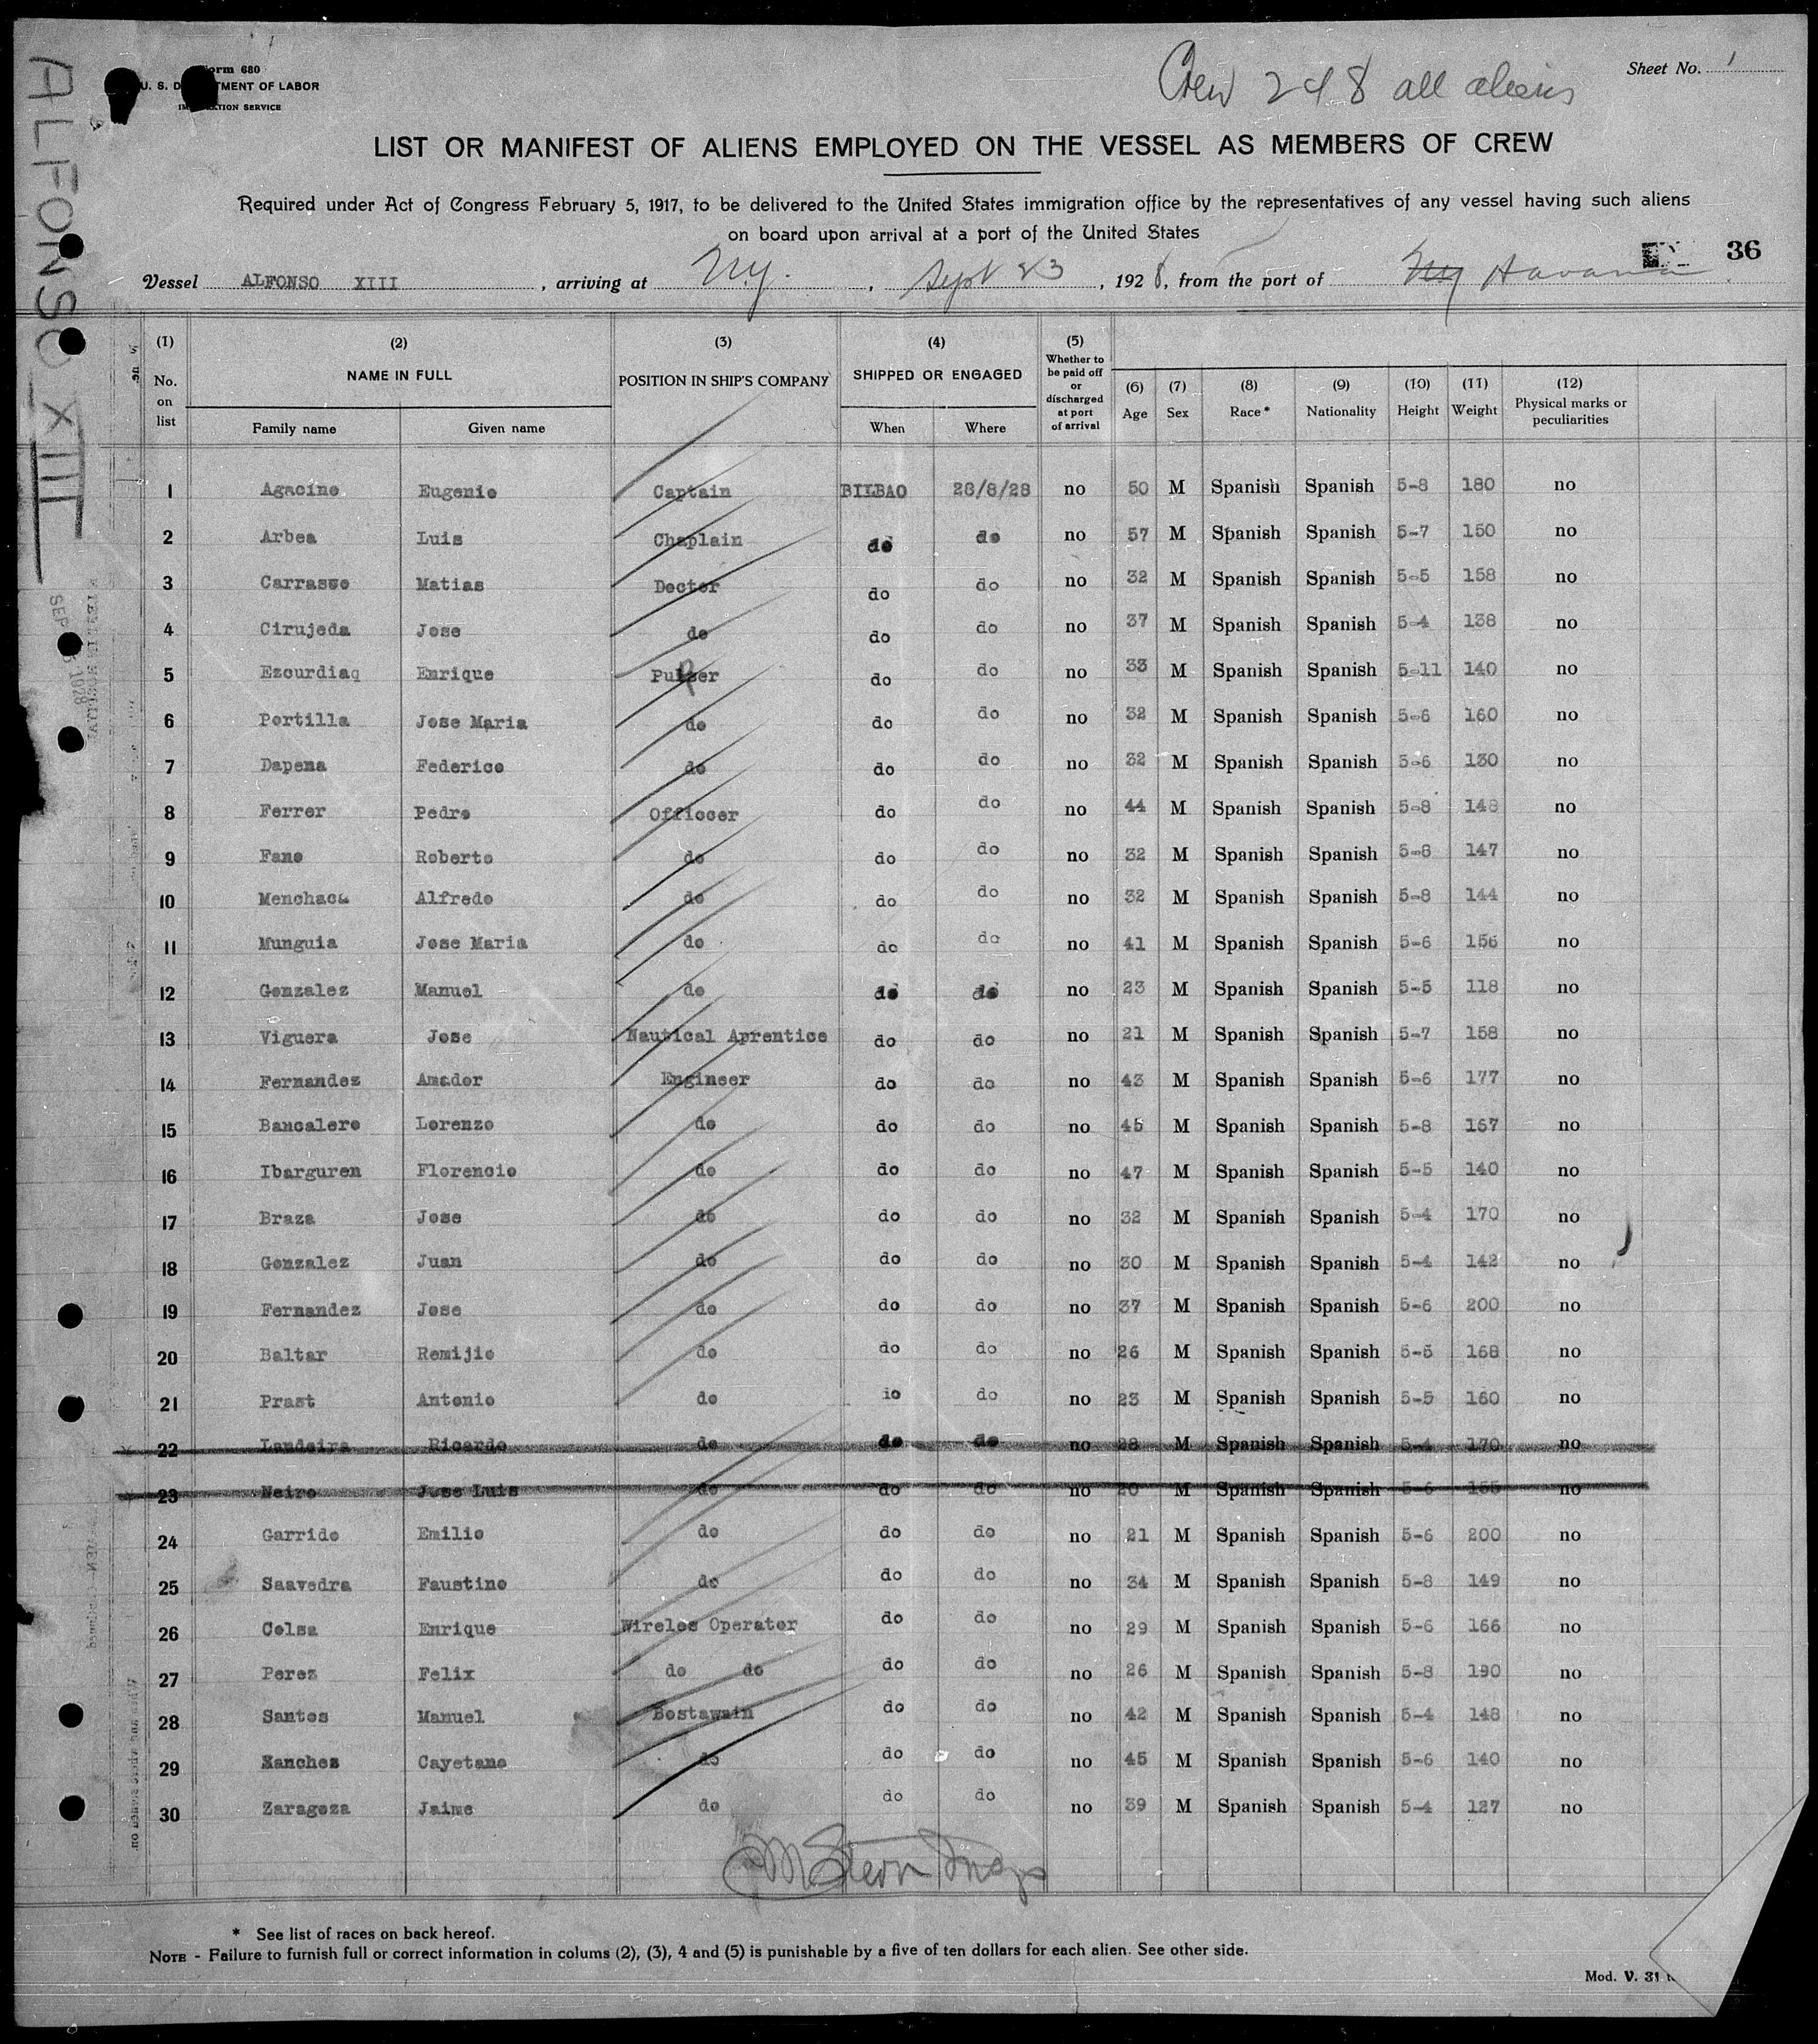 ALFONSO XIII
Form 680
U. S. D TMENT OF LABOR
IM RATION SERVICE
Crew 248 all aliens
Sheet No. 1
LIST OR MANIFEST OF ALIENS EMPLOYED ON THE VESSEL AS MEMBERS OF CREW
Required under Act of Congress February 5, 1917, to be delivered to the United States immigration office by the representatives of any vessel having such aliens
on board upon arrival at a port of the United States
36
Vessel ALFONSO XIII, arriving at N.y., Sept 23, 1928, from the port of Ny Havana
(1) (2) (3) (4) (5) (6) (7) (8) (9) (10) (11) (12)
No. on list NAME IN FULL Family name Given name POSITION IN SHIP'S COMPANY SHIPPED OR ENGAGED When Where Whether to be paid off or discharged at port of arrival Age Sex Race* Nationality Height Weight Physical marks or peculiarities
1 Agacino Eugenio Captain BILBAO 28/8/28 no 50 M Spanish Spanish 5-8 180 no
2 Arbea Luis Chaplain do do no 57 M Spanish Spanish 5-7 150 no
3 Carrasco Matias Doctor do do no 32 M Spanish Spanish 5-5 158 no
4 Cirujeda Jose do do do no 37 M Spanish Spanish 5-4 138 no
5 Ezcurdiaq Enrique Purser do do no 33 M Spanish Spanish 5-11 140 no
6 Portilla Jose Maria do do do no 32 M Spanish Spanish 5-6 160 no
7 Dapena Federico do do do no 32 M Spanish Spanish 5-6 130 no
8 Ferrer Pedro Officcer do do no 44 M Spanish Spanish 5-8 148 no
9 Fano Roberto do do do no 32 M Spanish Spanish 5-8 147 no
10 Menchaca Alfredo do do do no 32 M Spanish Spanish 5-8 144 no
11 Munguia Jose Maria do do do no 41 M Spanish Spanish 5-6 156 no
12 Gonzalez Manuel do do do no 23 M Spanish Spanish 5-5 118 no
13 Viguera Jose Nautical Aprentice do do no 21 M Spanish Spanish 5-7 158 no
14 Fernandez Amador Engineer do do no 43 M Spanish Spanish 5-6 177 no
15 Bancalero Lorenzo do do do no 45 M Spanish Spanish 5-8 167 no
16 Ibarguren Florencio do do do no 47 M Spanish Spanish 5-5 140 no
17 Braza Jose do do do no 32 M Spanish Spanish 5-4 170 no
18 Gonzalez Juan do do do no 30 M Spanish Spanish 5-4 142 no
19 Fernandez Jose do do do no 37 M Spanish Spanish 5-6 200 no
20 Baltar Remijio do do do no 26 M Spanish Spanish 5-5 168 no
21 Prast Antonio do io do no 23 M Spanish Spanish 5-5 160 no
22 Landeira Ricardo do do do no 28 M Spanish Spanish 5-4 170 no
23 Neiro Jose Luis do do do no 20 M Spanish Spanish 5-6 155 no
24 Garrido Emilio do do do no 21 M Spanish Spanish 5-6 200 no
25 Saavedra Faustino do do do no 34 M Spanish Spanish 5-8 149 no
26 Celsa Enrique Wireles Operator do do no 29 M Spanish Spanish 5-6 166 no
27 Perez Felix do do do do no 26 M Spanish Spanish 5-8 190 no
28 Santos Manuel Bostawain do do no 42 M Spanish Spanish 5-4 148 no
29 Sanchez Cayetano do do do no 45 M Spanish Spanish 5-6 140 no
30 Zaragoza Jaime do do do no 39 M Spanish Spanish 5-4 127 no
* See list of races on back hereof.
NOTE - Failure to furnish full or correct information in colums (2), (3), 4 and (5) is punishable by a five of ten dollars for each alien. See other side.
Mod. V. 31